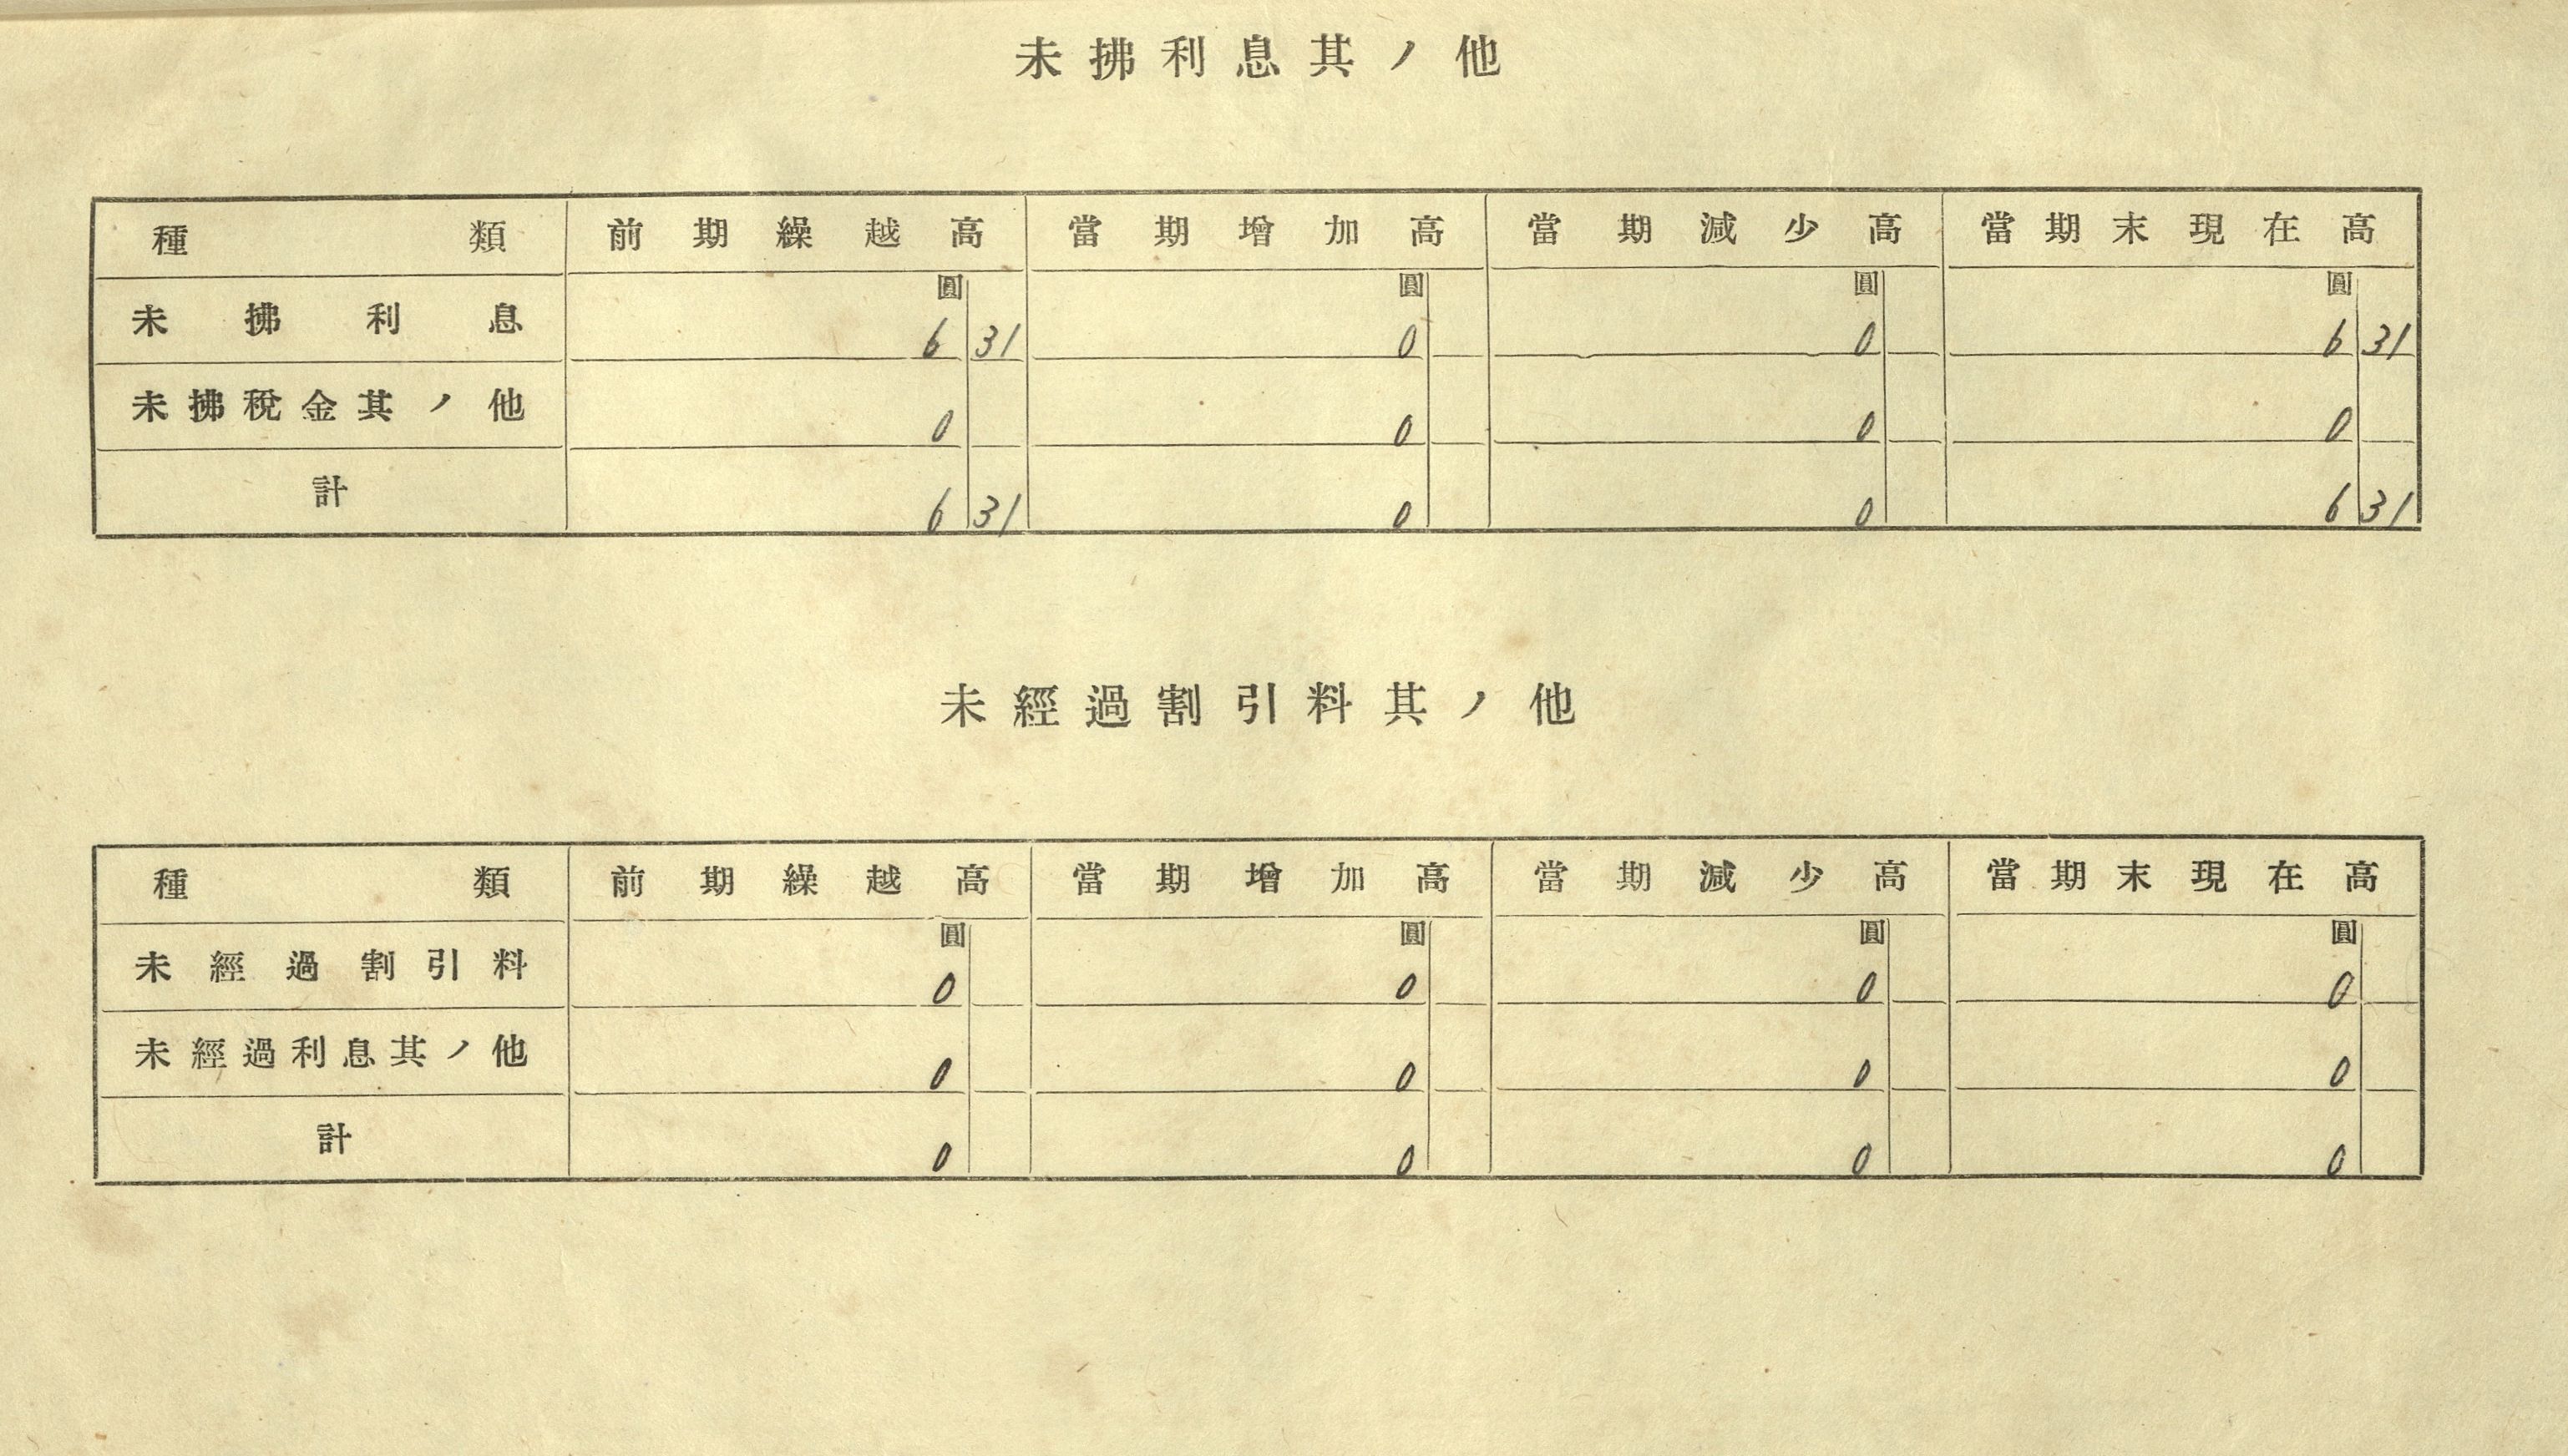 未拂利息其ノ他
種類 前期繰越高 當期增加高 當期減少高 當期末現在高
圓 圓 圓 圓
未拂利息 6 31 0 0 6 31
未拂稅金其ノ他 0 0 0 0
計 6 31 0 0 6 31
未經過割引料其ノ他
種類 前期繰越高 當期增加高 當期減少高 當期末現在高
圓 圓 圓 圓
未經過割引料 0 0 0 0
未經過利息其ノ他 0 0 0 0
計 0 0 0 0